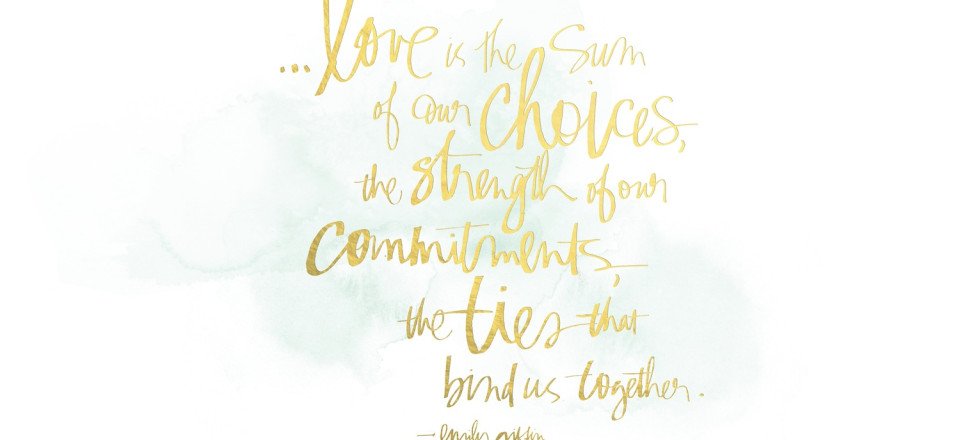 ...love is the sum
of our choices,
the strength of our
commitments,
the ties that
bind us together.
— emily giffin